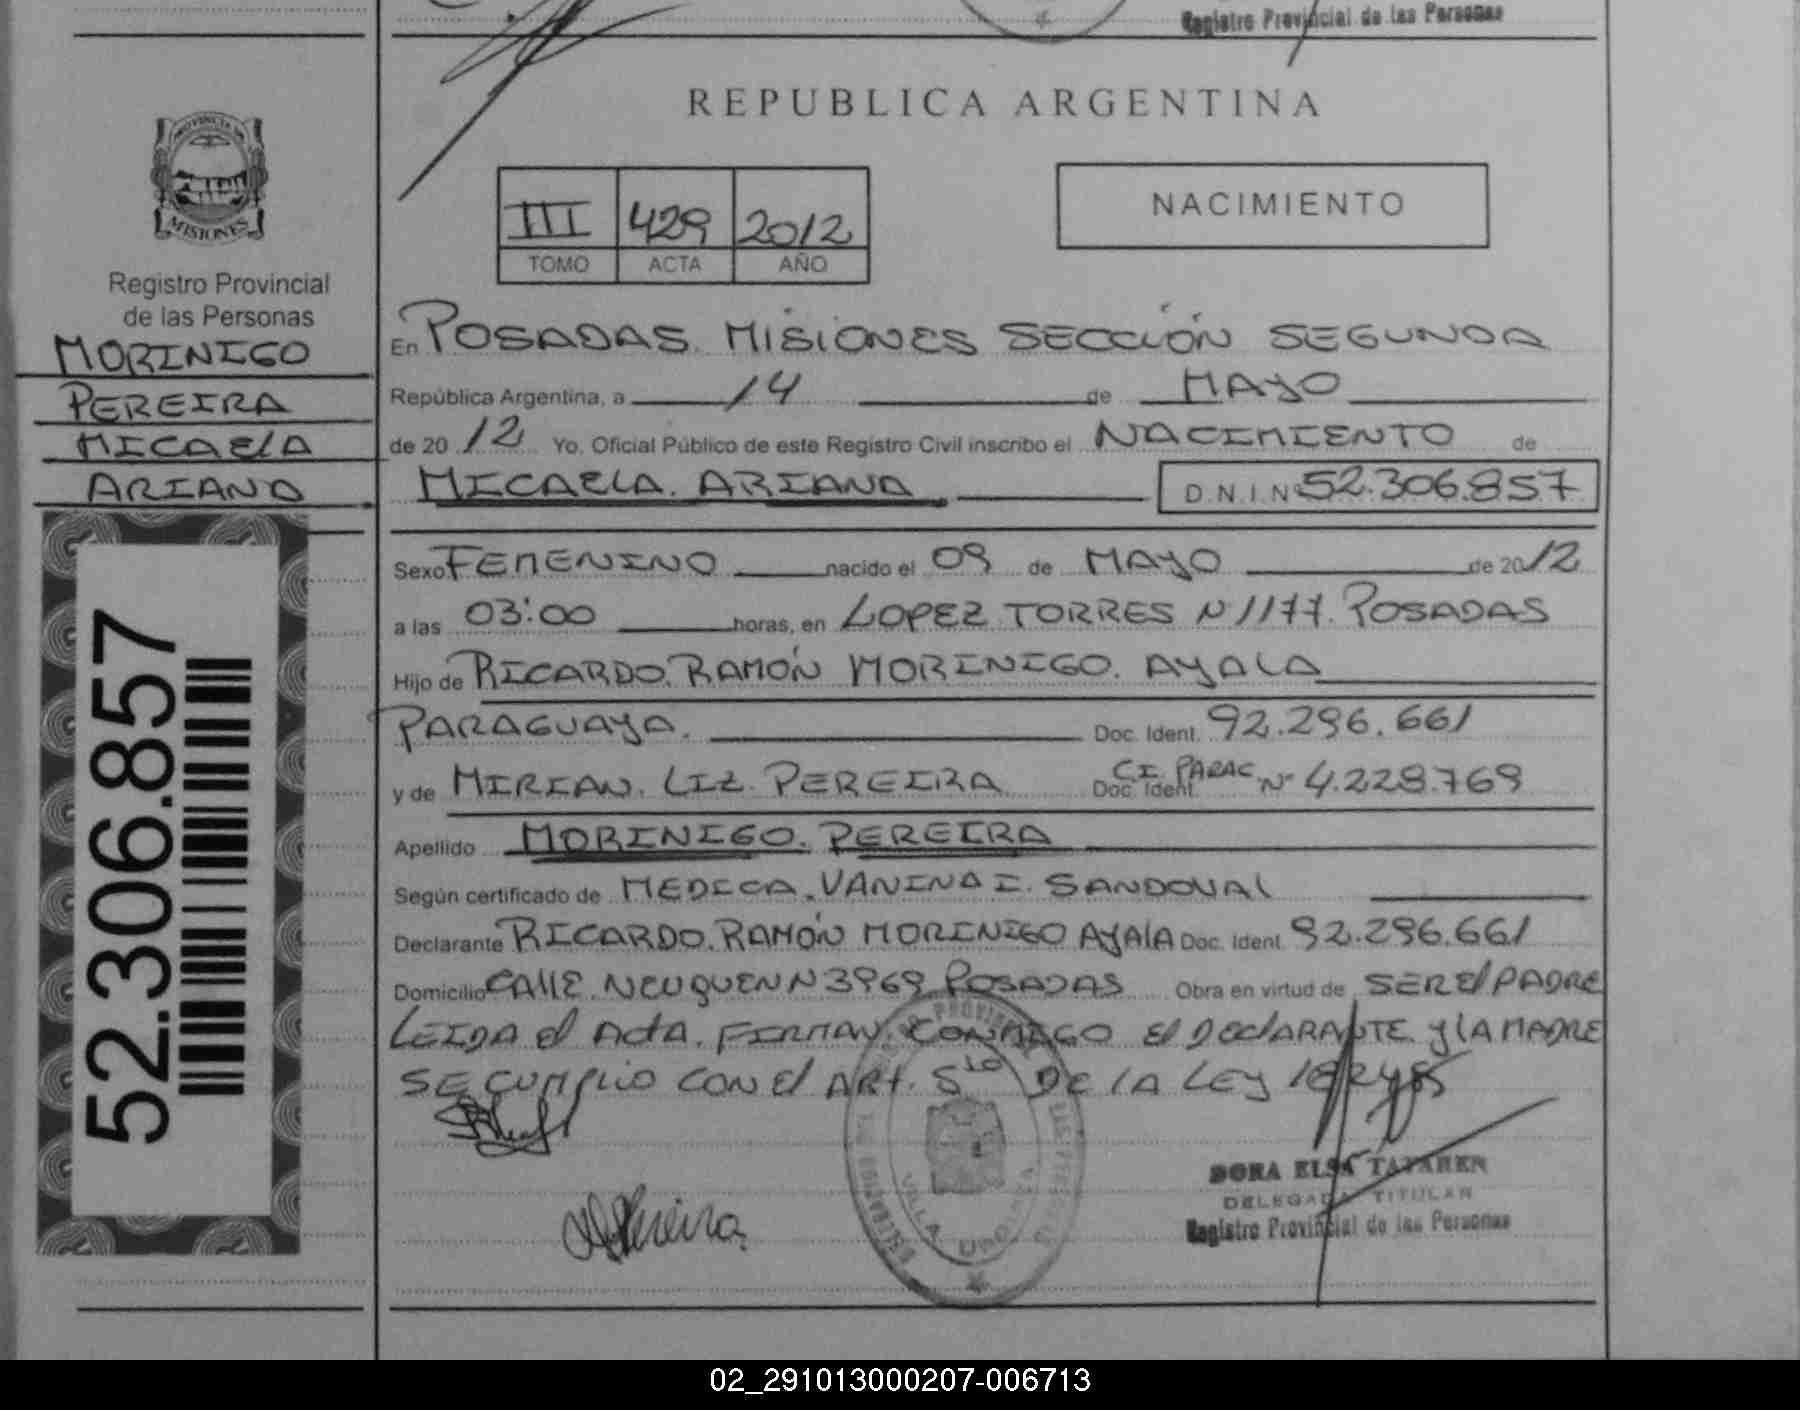 Registro Provincial de las Personas
REPUBLICA ARGENTINA
PROVINCIA DE
MISIONES
III 429 2012
TOMO ACTA AÑO
NACIMIENTO
Registro Provincial
de las Personas
MORINIGO
PEREIRA
MICAELA
ARIANA
52.306.857
En POSADAS. MISIONES SECCIÓN SEGUNDA
República Argentina, a 14 de MAYO
de 20 12 Yo. Oficial Público de este Registro Civil inscribo el NACIMIENTO de
MICAELA. ARIANA D.N.I.Nº 52.306.857
Sexo FEMENINO nacido el 09 de MAYO de 20 12
a las 03:00 horas, en LOPEZ TORRES N 1177. POSADAS
Hijo de RICARDO. RAMÓN MORINIGO. AYALA
PARAGUAYA. Doc. Ident. 92.296.661
y de MIRIAN. LIZ. PEREIRA Doc. Ident. C.I. PARAG. Nº 4.228.769
Apellido MORINIGO. PEREIRA
Según certificado de MEDICA. VANINA I. SANDOVAL
Declarante RICARDO. RAMÓN MORINIGO AYALA Doc. Ident. 92.296.661
Domicilio CALLE NEUQUEN N 3969 POSADAS Obra en virtud de SER El PADRE
LEIDA el ActA. FIRMAN. CONMIGO El DEClARANTE y lA MADRE
SE CUMPLIO CON El ARt. 5to DE lA LEY
Pereira
VILLA URQUIZA
DORA ELSA TATAREN
DELEGADA TITULAR
Registro Provincial de las Personas
02_291013000207-006713